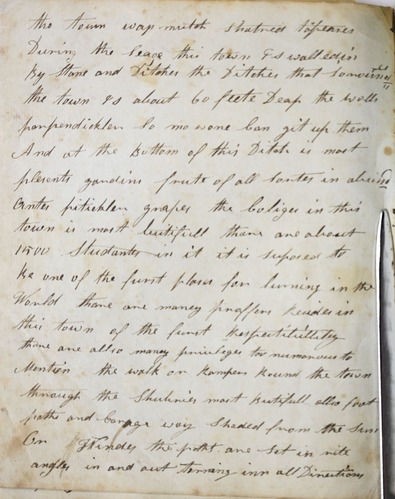 the town way mutch shatred to peares
During the Seage this town is walled in
By Stone and Ditches the Ditches that
the town is about 60 feete Deap the walls
parpendickler So no wone can git up them
And at the Bottom of this Ditch is most
plesents gardins frute of all sortes in
pitickler grapes the coliges in this
town is most butifull thare are about
1500 Students in it it is suposed to
Be one of the furst plases for lurning in the
World thare are maney proffers Reides in
this town of the furst Respectibillity
thare are allso maney privileges too numourous to
Mention the walk or Rampers Round the town
through the most butifull allso foot
path and way Shaded from the Sun
the path are set in rite
angles in and out turning inn all Directions